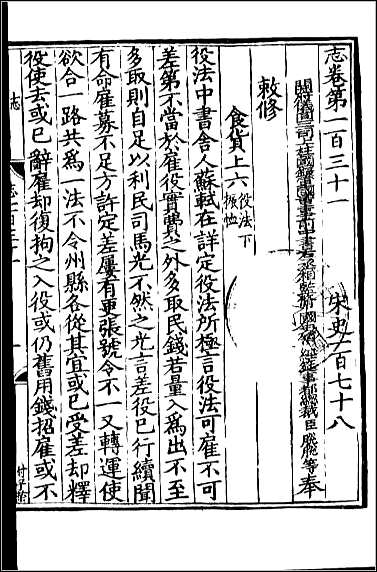 志卷第一百三十一 宋史一百七十八
開府儀同三司上柱國錄軍國重事前中書右丞相監修國史領經筵事都總裁臣脫脫等奉
敕修
食貨上六 役法下 振恤
役法中書舍人蘇軾在詳定役法所極言役法可雇不可
差第不當於雇役實費之外多取民錢若量入為出不至
多取則自足以利民司馬光不然之光言差役已行續聞
有命雇募不足方許定差屢有更張號令不一又轉運使
欲合一路共為一法不令州縣各從其宜或已受差却釋
役使去或已辭雇却復拘之入役或仍舊用錢招雇或不
志